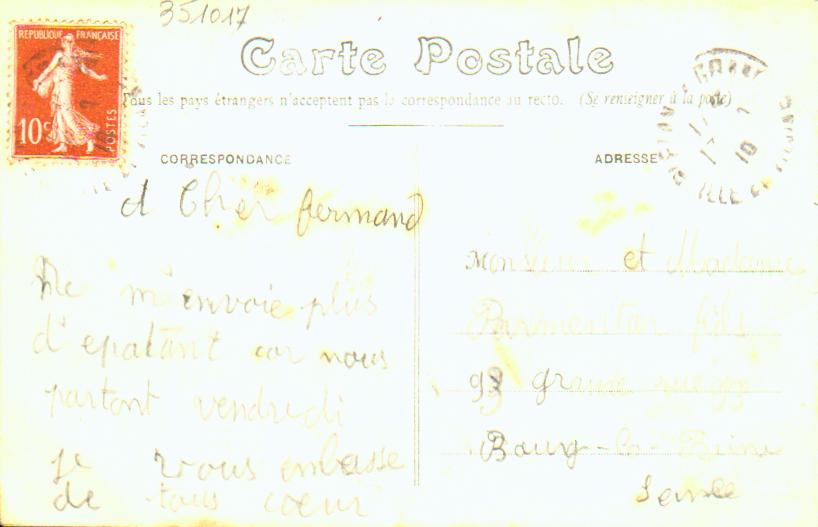 351017
REPUBLIQUE FRANÇAISE
10c
POSTES
Carte Postale
Tous les pays étrangers n'acceptent pas la correspondance au recto. (Se renseigner à la poste)
CORRESPONDANCE
d Cher fernand
Ne m'envoie plus
d'epatant car nous
partont vendredi
je vous enbasse
de tous coeur
ADRESSE
Monsieur et Madame
Parmentar fils
93 grande rue 93
Bourg-la-Reine
ILLE
10